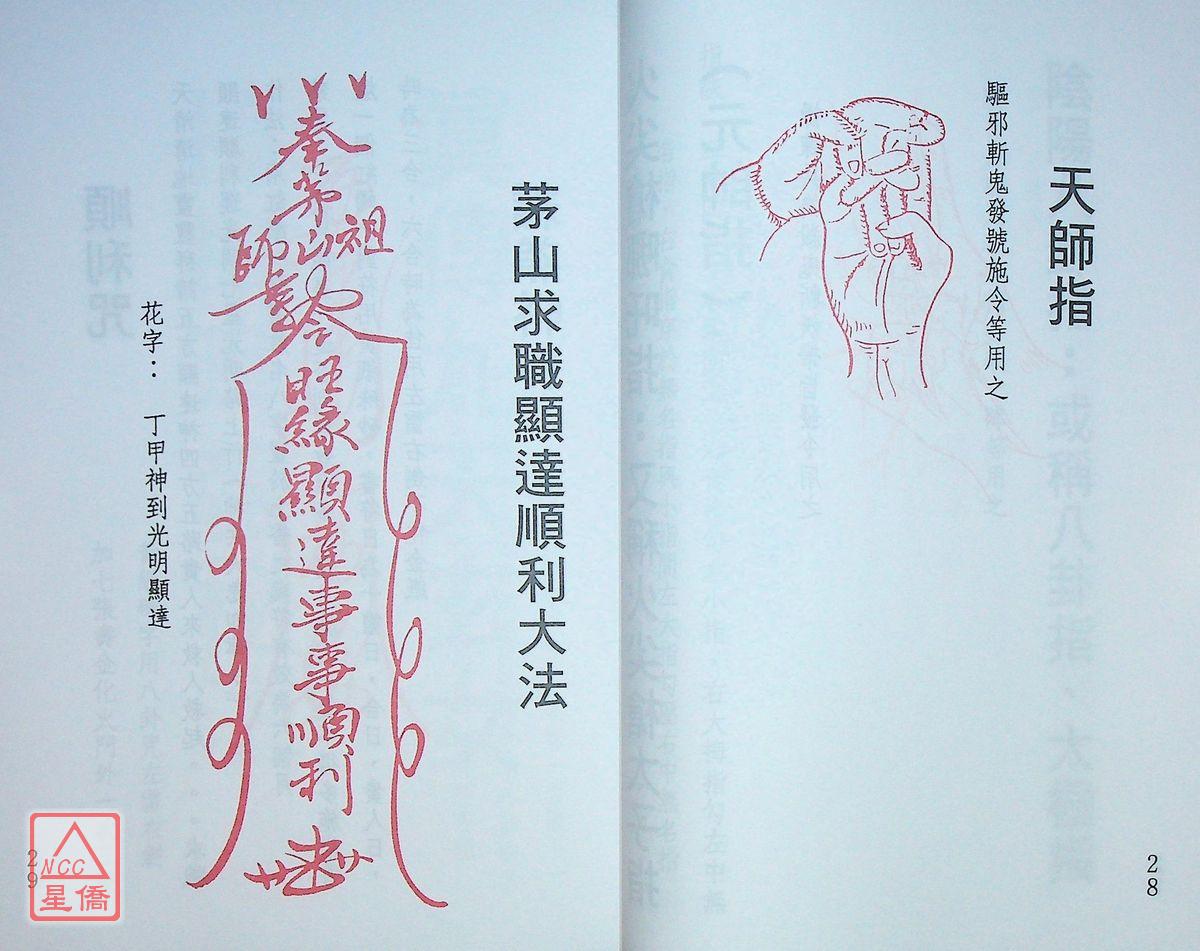 天師指
驅邪斬鬼發號施令等用之
28
茅山求職顯達順利大法
奉茅山祖師
旺緣顯達事事順利
花字：丁甲神到光明顯達
29
NCC
星僑